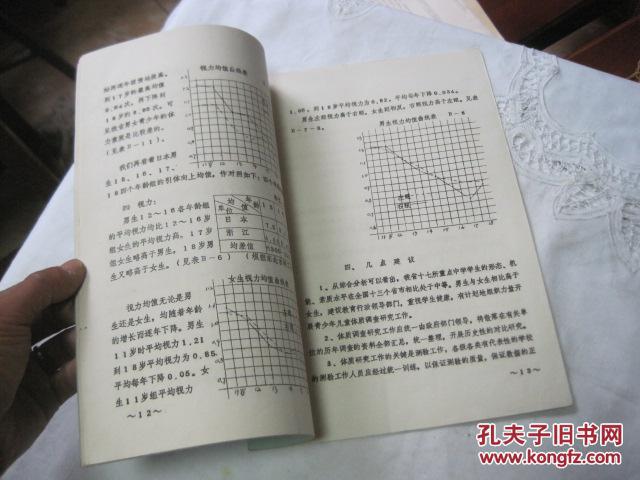 始再逐年缓慢地提高，
到17岁的最高均值
18岁的
见我省男女青少年的体
力素质是比较差的。
（见表B—11）。
我们再看看日本男
生15、16、17、
18四个年龄组的引体向上均值，作对照如下：
四 视力：
男生12～16各年龄组
的平均视力均比12～16岁
组女生的平均视力高。17岁
组女生略高于男生。18岁男
生又略高于女生。（见表B—6）
视力均值曲线差
均 年
值 龄
单位
日本
浙江
均差值
女生视力均值曲线差
视力均值无论是男
生还是女生，均随着年龄
的增长而逐年下降。男生
11岁时平均视力1.21
到18岁平均视力为0.85
平均每年下降0.05。女
生11岁组平均视力
～12～
1.06。到18岁平均视力为0.82，平均每年下降0.034。
男生左眼视力高于右眼。女生则相反，右眼视力高于左眼。见表
B—7—8。
男生视力均值曲线差 B—8
左眼
右眼
四、几点建议
1、从综合分析可以看出，我省十七所重点中学学生的形态、机
能、素质水平在全国十三个省市相比处于中等。男生与女生相比高于
女生，建议教育行政领导部门，重视学生健康，有计划地组织力量开
展青少年儿童体质调查研究工作。
2、体质调查研究工作应统一由政府部门领导，将散落在有关单
位的历年调查的资料全部汇总，统一整理，开展历史性的对比研究。
3、体质研究工作的关键是测验工作，各级各类有代表性的学校
的测验工作人员应经过统一训练，以保证测验的质量，保证数据的正
～13～
孔夫子旧书网
www.kongfz.com